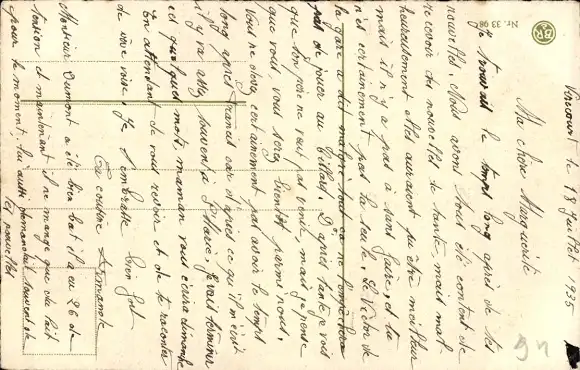 Nr. 33 98
le 18 juillet 1935
Ma chère Marguerite
Je trouvais le temps long après de tes
nouvelles. Nous avons tous été content de
recevoir des nouvelles de tante, mais mal-
heureusement elles auraient pu être meilleur
mais il n'y a pas à s'en faire, et tu
n'es certainement pas la seule. Le Victor de
la gare a dit malgré tout ça ne l'empêchera
pas de jouer au billard. D'après tante je vois
que ton père ne veut pas venir, mais je pense
que vous, vous serez bientôt parmi nous.
Vous ne devez certainement pas avoir le temps
long après Francis car d'après ce qu'il m'écrit
il y va assez souvent à Je vais terminer
ces quelques mots, maman vous écrira dimanche
En attendant de vous revoir et de te raconter
de vive voix, je t'embrasse bien fort
Ta cousine
Monsieur Dumont a été bien bas il a eu 26 de
tension et maintenant il ne mange que du lait
pour le moment, lui aussi demandait souvent de
tes nouvelles